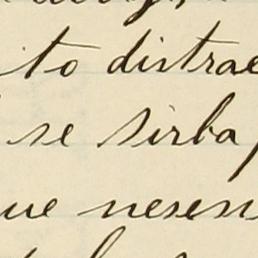 to distrae
se sirba,
ue nesen